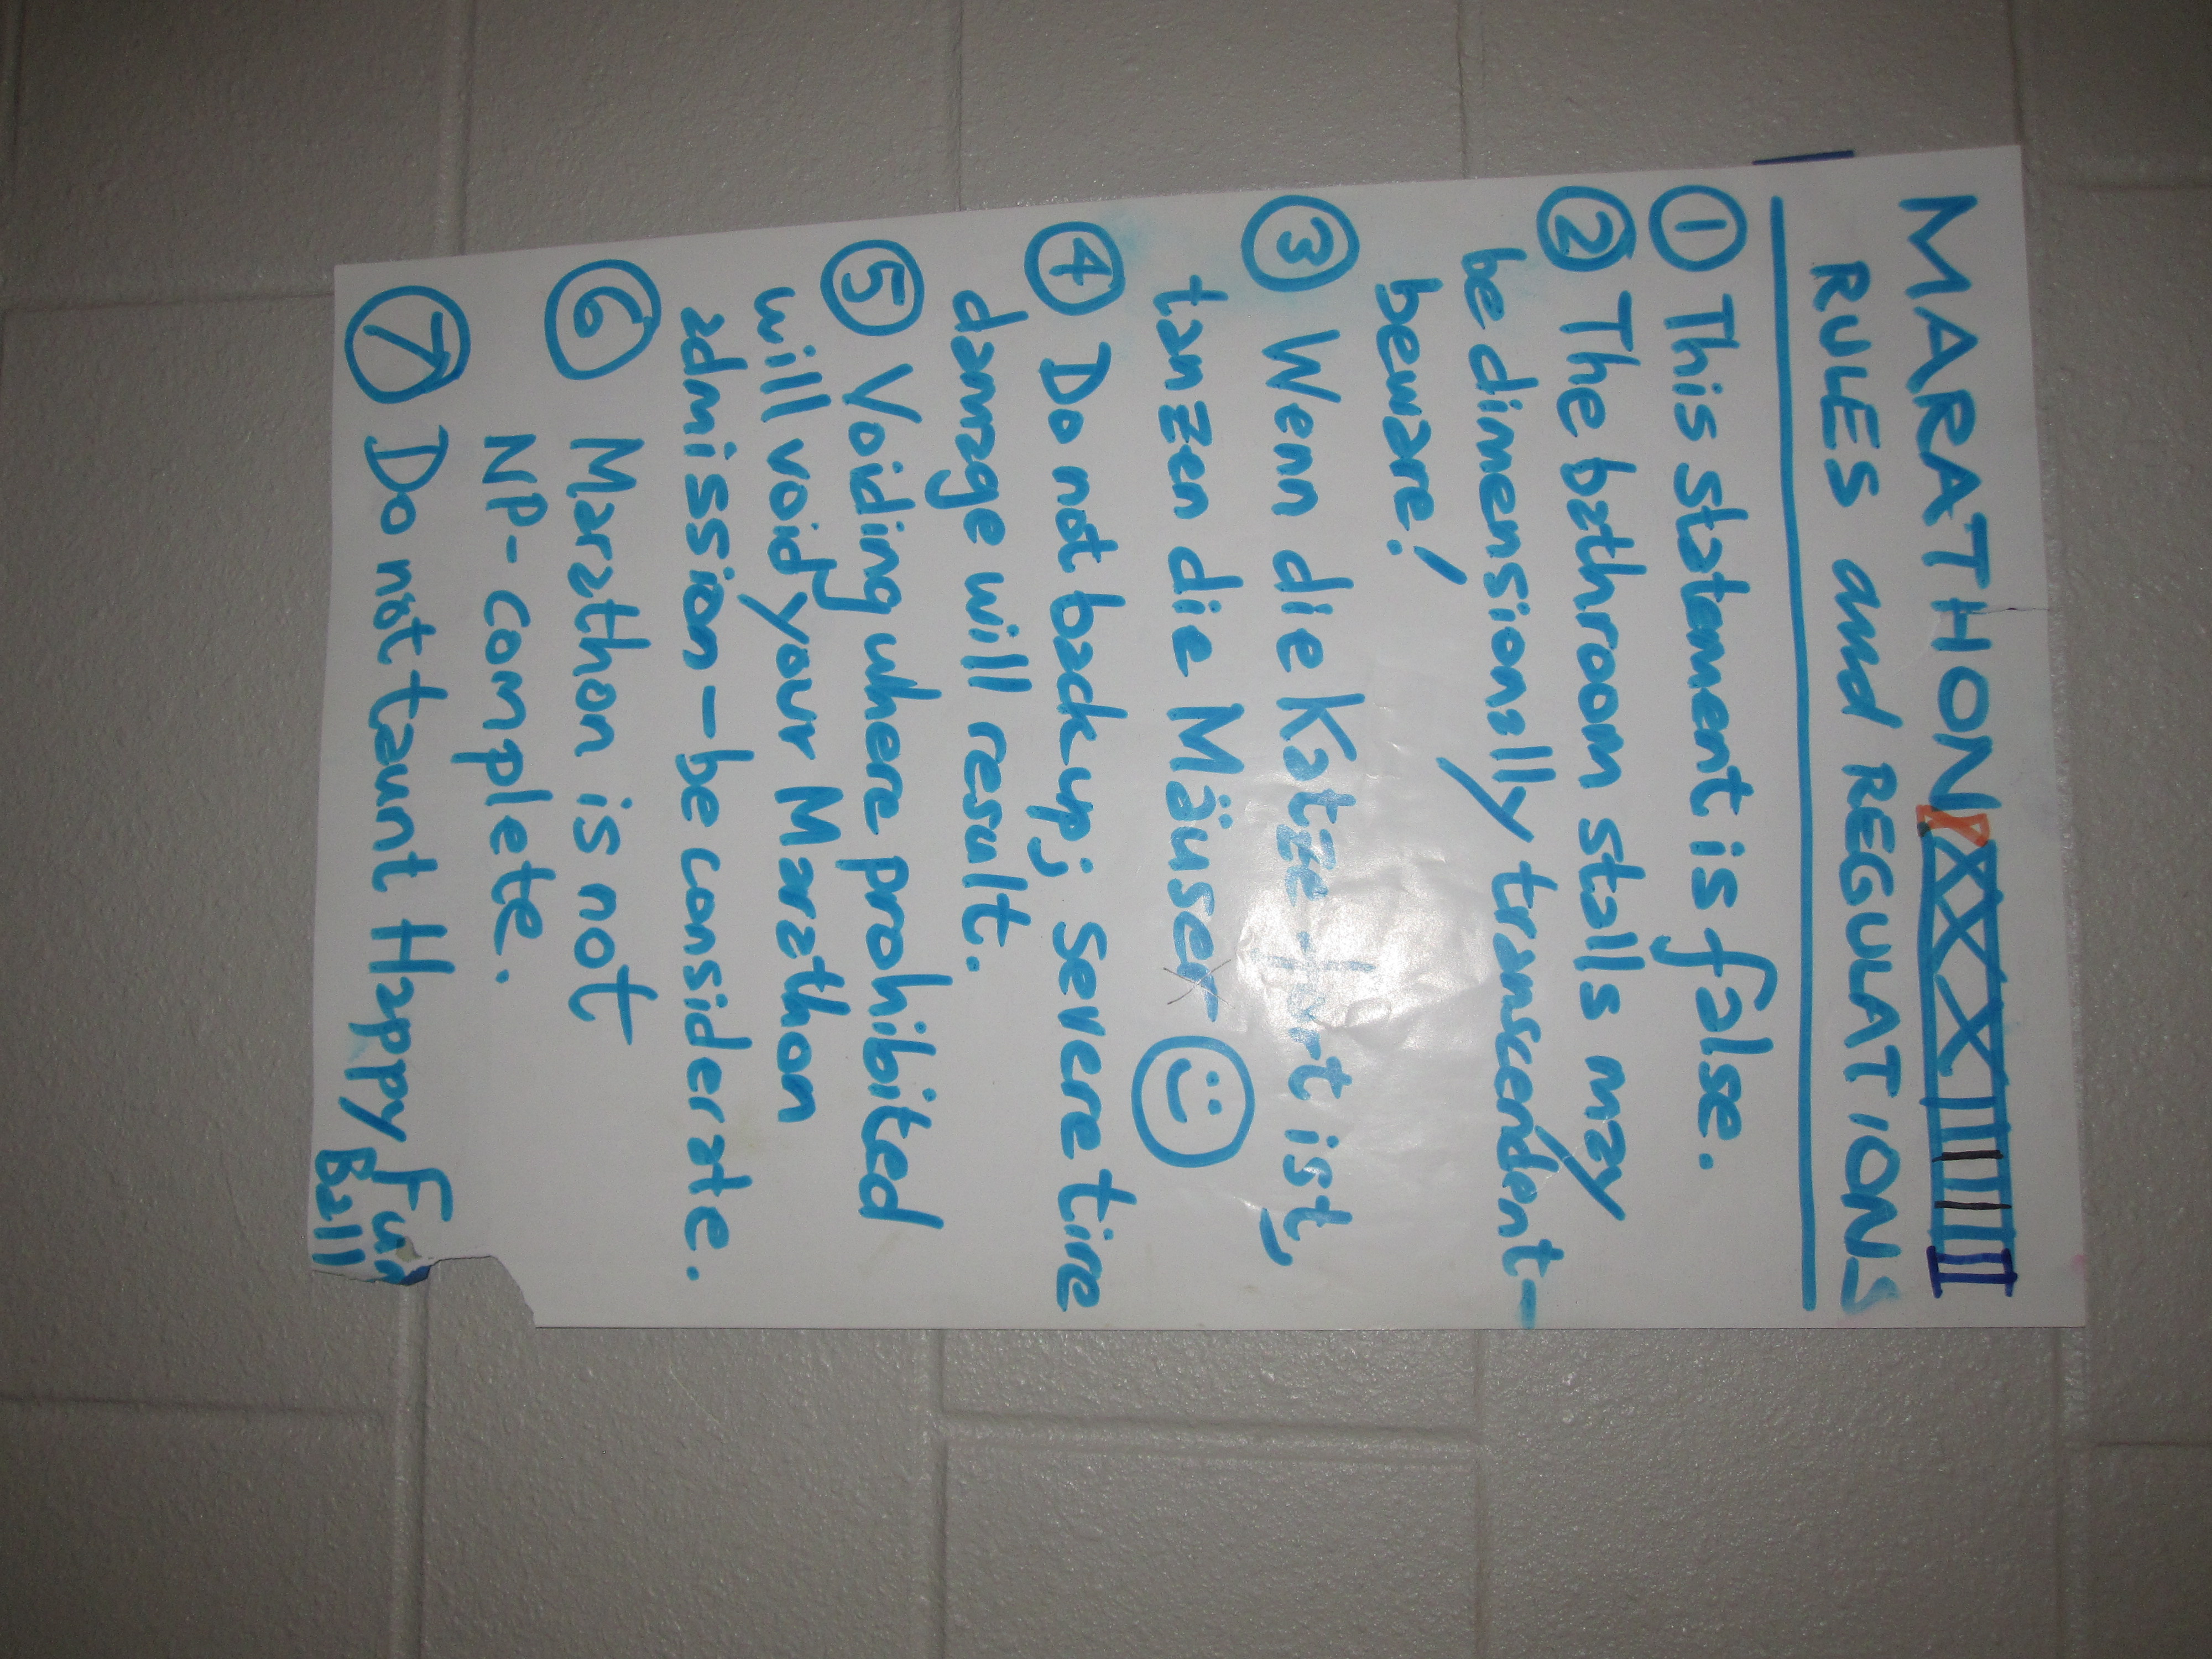 MARATHON
RULES and REGULATIONS
① This statement is false.
② The bathroom stalls may
be dimensionally transcendent-
beware!
③ Wenn die Katze fort ist,
tanzen die Mäuser
④ Do not back up; severe tire
damage will result.
⑤ Voiding where prohibited
will void your Marathon
admission - be considerate.
⑥ Marathon is not
NP-complete.
⑦ Do not taunt Happy Fun
Ball